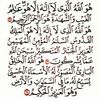 هُوَ اللَّهُ الَّذِي لَا إِلَهَ إِلَّا هُوَ عَالِمُ
الْغَيْبِ وَالشَّهَادَةِ هُوَ الرَّحْمَنُ الرَّحِيمُ
هُوَ اللَّهُ الَّذِي لَا إِلَهَ إِلَّا هُوَ الْمَلِكُ
الْقُدُّوسُ السَّلَامُ الْمُؤْمِنُ الْمُهَيْمِنُ
الْعَزِيزُ الْجَبَّارُ الْمُتَكَبِّرُ سُبْحَانَ اللَّهِ
عَمَّا يُشْرِكُونَ هُوَ اللَّهُ الْخَالِقُ
الْبَارِئُ الْمُصَوِّرُ لَهُ الْأَسْمَاءُ الْحُسْنَى
يُسَبِّحُ لَهُ مَا فِي السَّمَوَاتِ وَالْأَرْضِ
وَهُوَ الْعَزِيزُ الْحَكِيمُ